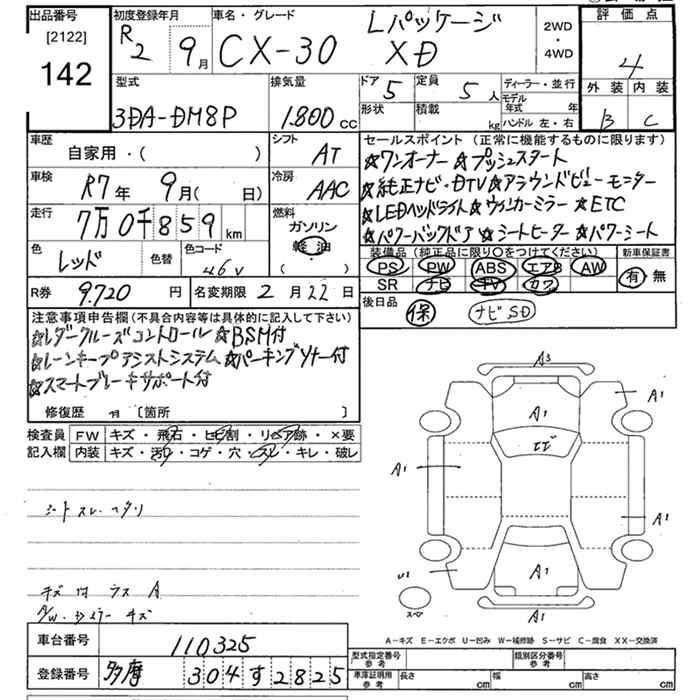 出品番号
[2122]
142
初度登録年月
R2 9月
車名・グレード
Lパッケージ
CX-30 XD
2WD
・
4WD
評価点
4
外装 内装
B C
型式
3DA-DM8P
排気量
1.800 cc
ドア 5
定員 5人
形状
積載 kg
ディーラー・並行
モデル年式 年
ハンドル 左・右
車歴
自家用・( )
シフト
AT
車検
R7年 9月( 日)
冷房
AAC
走行
7万0千859km
燃料
ガソリン
軽油
( )
色
レッド
色替
色コード
46V
R券
9.720円
名変期限 2月22日
セールスポイント (正常に機能するものに限ります)
☆ワンオーナー ☆プッシュスタート
☆純正ナビ・DTV ☆アラウンドビューモニター
☆LEDヘッドライト ☆ウインカーミラー ☆ETC
☆パワーバックドア ☆シートヒーター ☆パワーシート
装備品 (純正品に限り○をつけてください)
PS PW ABS エアB AW
SR ナビ TV カワ
新車保証書
有・無
後日品
保 ナビSD
注意事項申告欄(不具合内容等は具体的に記入して下さい)
☆レダークルーズコントロール ☆BSM付
☆レーンキープアシストシステム ☆パーキングソナー付
☆スマートブレーキサポート付
修復歴 有 [箇所 ]
検査員
記入欄
FW キズ・飛石・ヒビ割・リペア跡・×要
内装 キズ・汚れ・コゲ・穴・スレ・キレ・破レ
シートスレ
A3
A1
A1
A1
A1
A1
A1
A1
A-キズ E-エクボ U-凹み W-補修跡 S-サビ C-腐食 XX-交換済
車台番号
110325
登録番号
多摩 304す2825
型式指定番号
参考
類別区分番号
参考
車庫証明用
参考
長さ cm
幅 cm
高さ cm